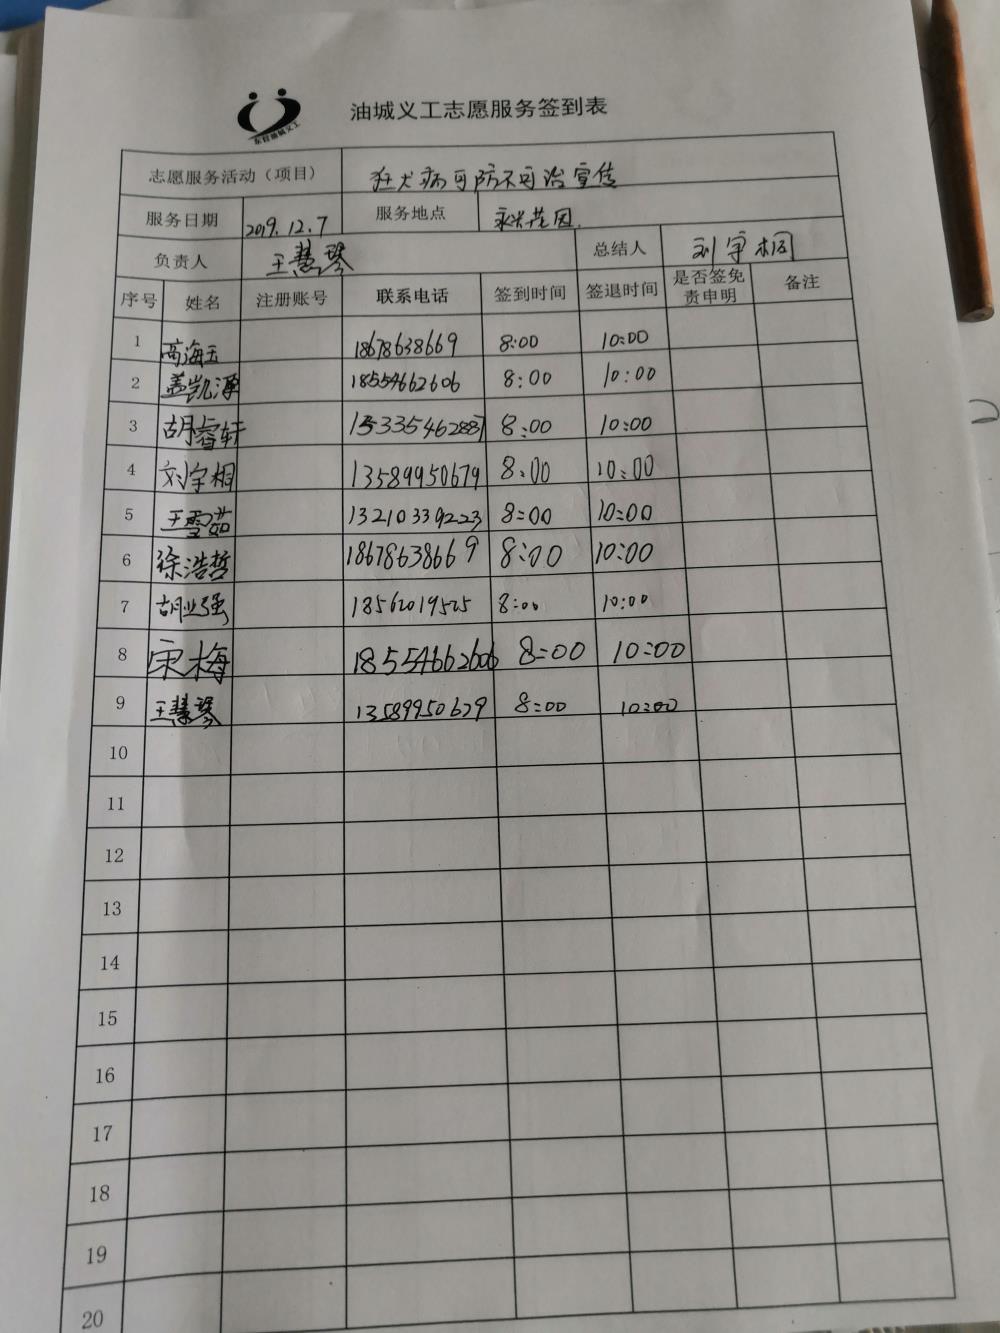 东营油城义工
油城义工志愿服务签到表
志愿服务活动（项目） 狂犬病可防不可治宣传
服务日期 2019.12.7 服务地点 永兴花园.
负责人 王慧琴 总结人 刘宇桐
序号 姓名 注册账号 联系电话 签到时间 签退时间 是否签免责申明 备注
1 高海玉 18678638669 8:00 10:00
2 盖凯源 18554662606 8:00 10:00
3 胡睿轩 15335462887 8:00 10:00
4 刘宇桐 13589950679 8:00 10:00
5 王雪茹 13210339223 8:00 10:00
6 徐浩哲 18678638669 8:00 10:00
7 胡业强 18562019525 8:00 10:00
8 宋梅 18554662606 8:00 10:00
9 王慧琴 13589950679 8:00 10:00
10
11
12
13
14
15
16
17
18
19
20